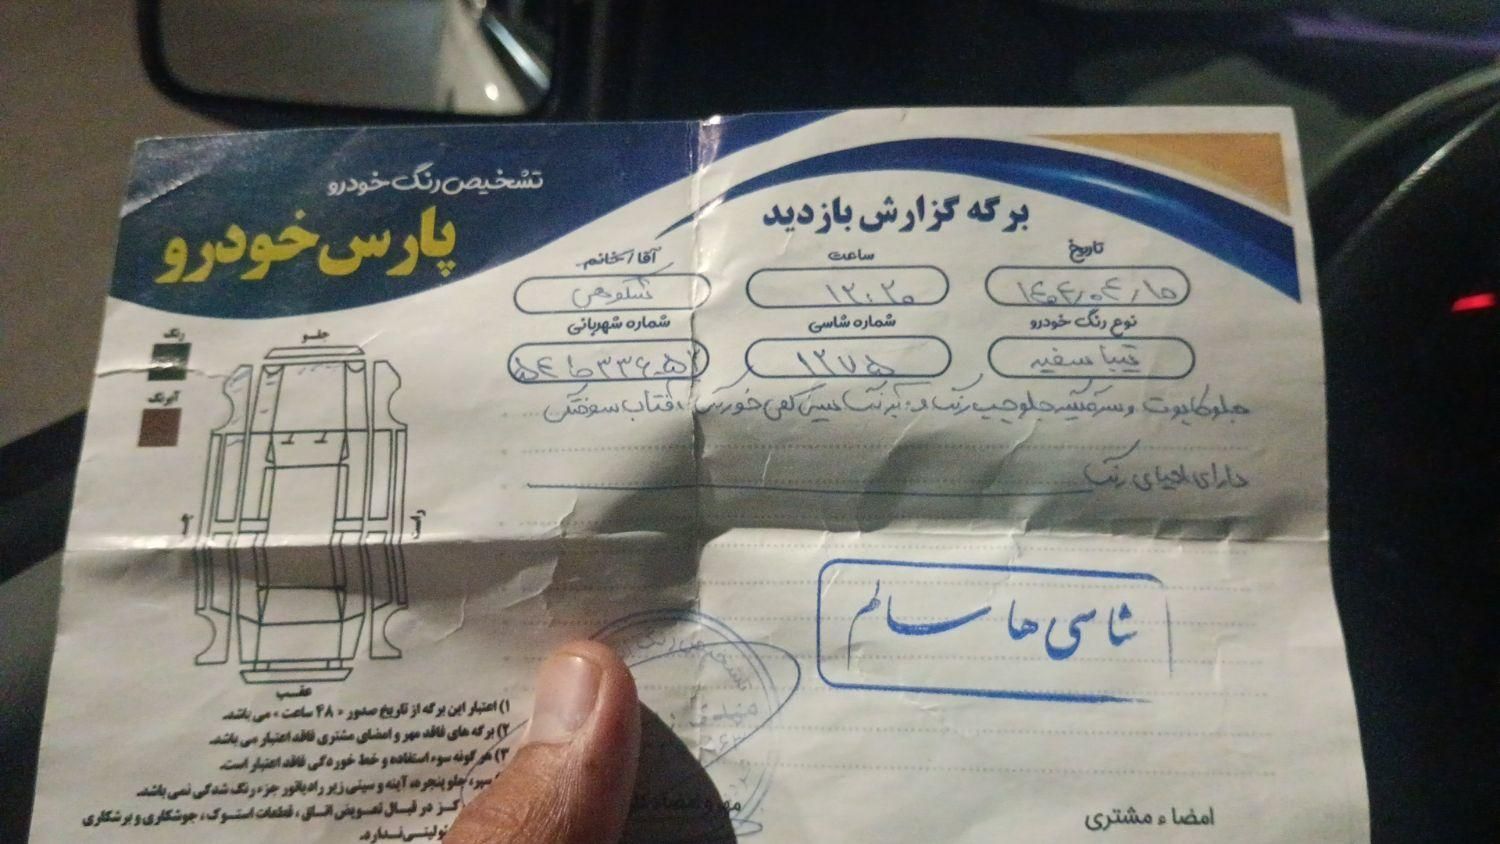 تشخیص رنگ خودرو
پارس خودرو
برگه گزارش بازدید
تاریخ
۱۴۰۴/۰۴/۱۵
ساعت
۱۲:۲۰
آقا / خانم
شکوهی
نوع رنگ خودرو
تیبا سفید
شماره شاسی
۱۲۷۵
شماره شهربانی
رنگ
آبرنگ
جلو
راست
چپ
عقب
جلو کاپوت و
جلو چپ رنگ
خوردگی آفتاب سوختگی
دارای احیای رنگ
شاسی ها سالم
تشخیص رنگ
۱) اعتبار این برگه از تاریخ صدور « ۴۸ ساعت » می باشد.
۲) برگه های فاقد مهر و امضای مشتری فاقد اعتبار می باشد.
۳) هر گونه سوء استفاده و خط خوردگی فاقد اعتبار است.
سپر، جلو پنجره، آینه و سینی زیر رادیاتور جزء رنگ شدگی نمی باشد.
کز در قبال تعویض اتاق ، قطعات استوک ، جوشکاری و برشکاری
ندارد.
امضاء مشتری